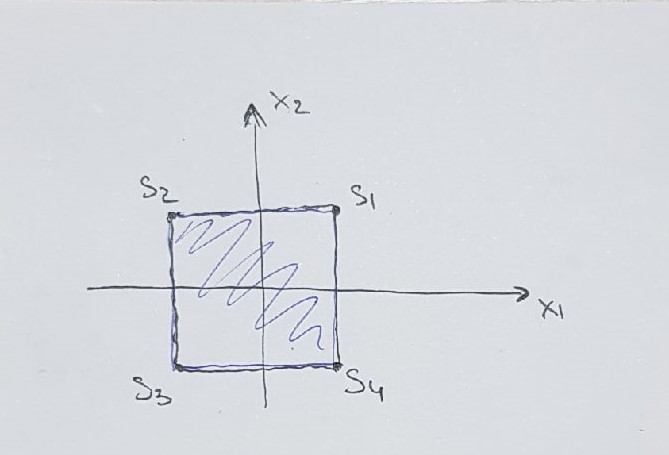 X2
S2
S1
X1
S3
S4